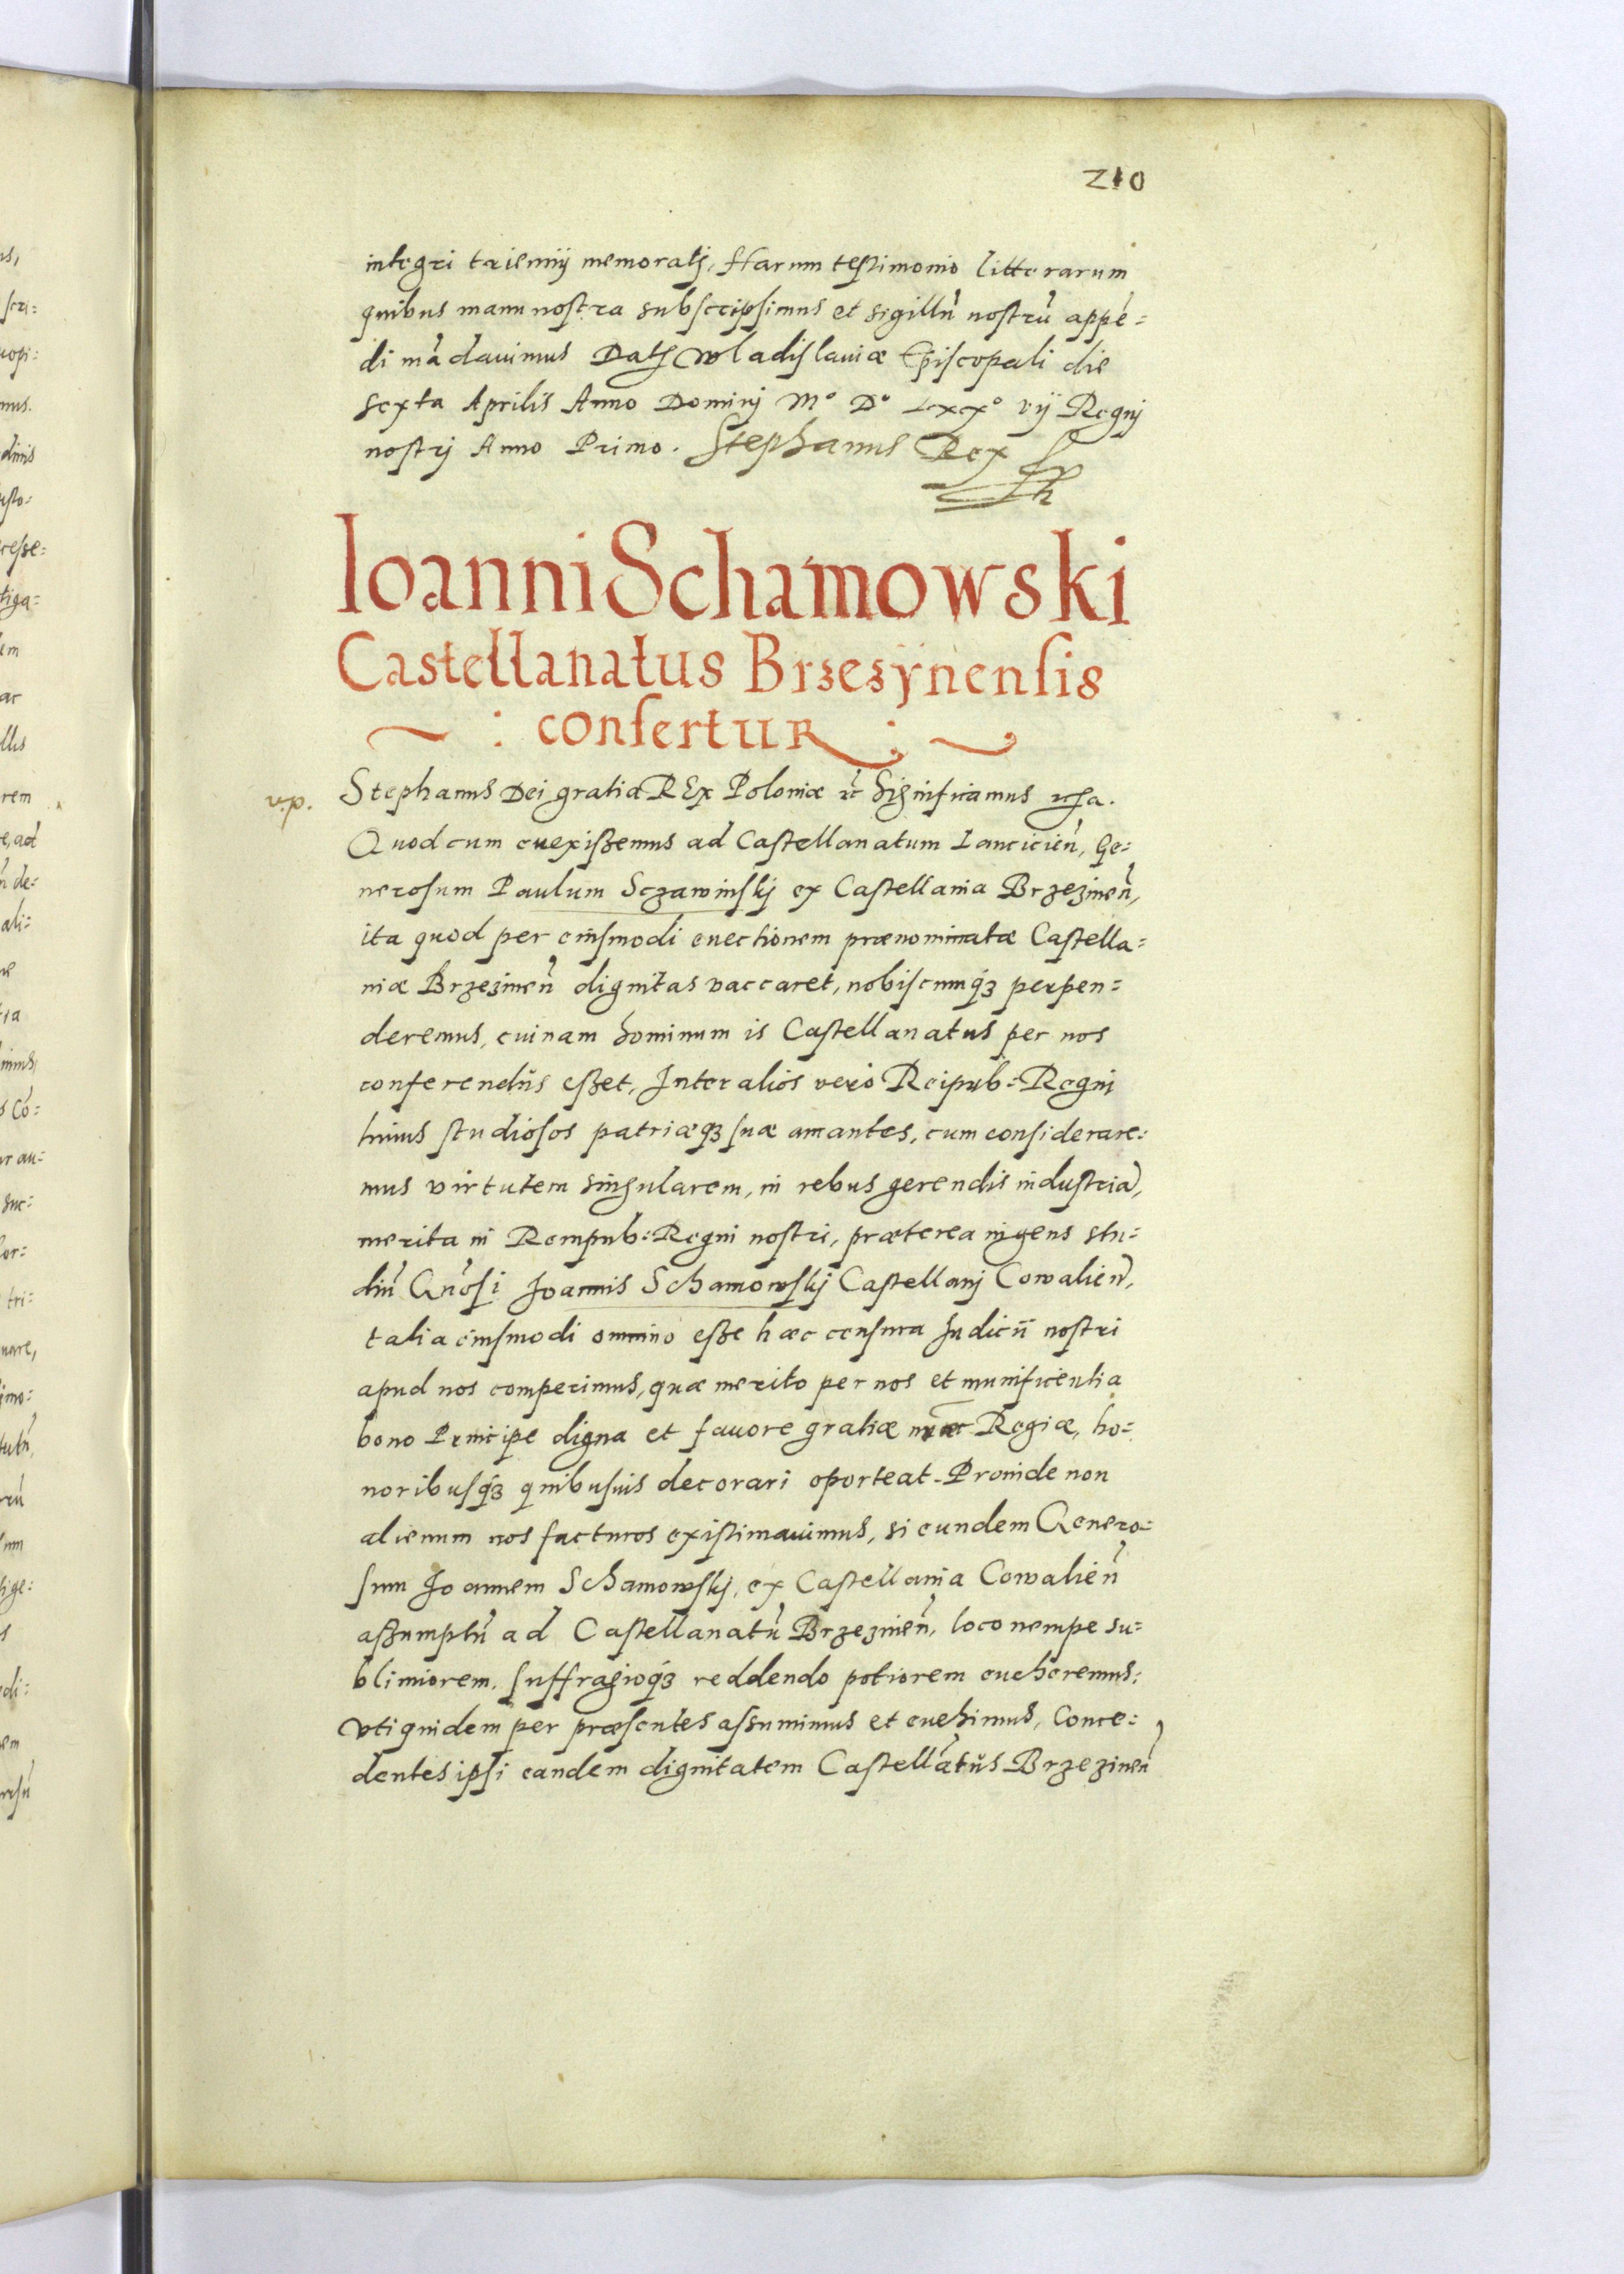 210
integri triennij memoratj. Harum testimonio litterarum
quibus manu nostra subscripsimus et sigillũ nostrũ appẽ=
di mãdauimus Datẽ Wladislauiæ Episcopali die
sexta Aprilis Anno Dominj Mº Dº Lxxº vij Regnj
nostrj Anno Primo. Stephanus Rex
Ioanni Schamowski
Castellanatus Brzezÿnensis
: confertur :
v.p. Stephanus Dei gratia REx Poloniæ ꝛc̃ Significamus
Quod cum euexissemus ad Castellanatum Lanciciẽn, Ge=
nerosum Paulum Sczawinskj ex Castellania Brzezineñ,
ita quod per eiusmodi euectionem prænominatæ Castella=
niæ Brzezineñ dignitas vaccaret, nobiscumq́ꝫ perpen=
deremus, cuinam hominum is Castellanatus per nos
conferendũs esset, Inter alios vero Reipub: Regni
huius studiosos patriæqꝫ suæ amantes, cum considerare=
mus virtutem singularem, in rebus gerendis industriã,
merita in Rempub: Regni nostri, præterea ingens stu=
diũ Gñosi Joannis Schamowskj Castellanj Cowalieñ,
talia eiusmodi omnino esse hæc censura Judicii nostri
apud nos comperimus, quæ merito per nos et munificentia
bono Principe digna et fauore gratiæ nr̃æ Regiæ, ho=
noribusq́ꝫ quibusuis decorari oporteat. Proinde non
alienum nos facturos existimauimus, si eundem Genero=
sum Joannem Schamowskj, ex Castellania Cowalieñ
assumptũ ad Castellanatũ Brzezineñ, loco nempe su=
blimiorem, suffragioq́ꝫ reddendo potiorem eueheremus:
Vti quidem per præsentes assumimus et euehimus, Conce=
dentes ipsi eandem dignitatem Castellãtũs Brzezineñ